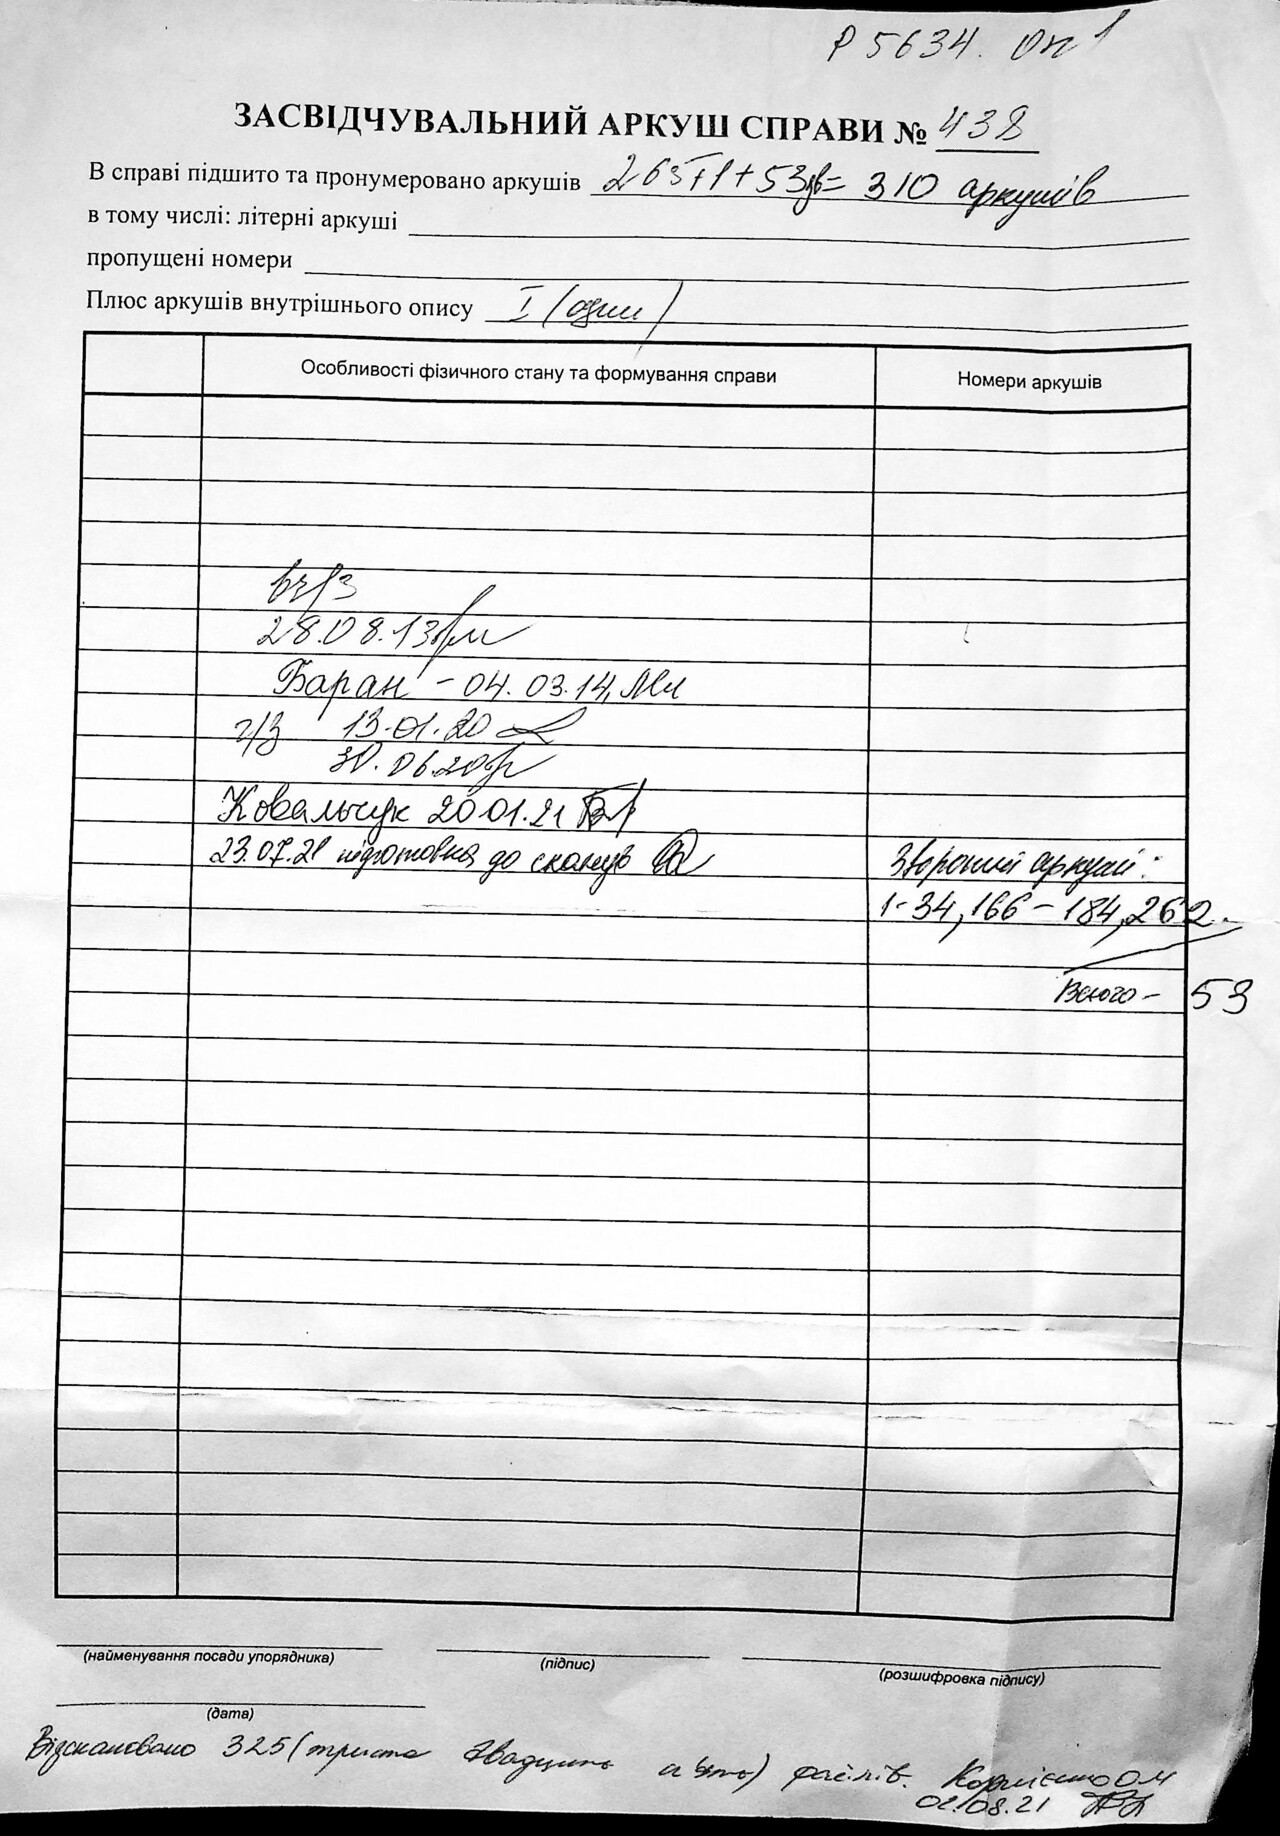 Р 5634. Оп 1
ЗАСВІДЧУВАЛЬНИЙ АРКУШ СПРАВИ № 438
В справі підшито та пронумеровано аркушів 310 аркушів
в тому числі: літерні аркуші
пропущені номери
Плюс аркушів внутрішнього опису I (один)
Особливості фізичного стану та формування справи
Номери аркушів
28.08.13
Баран - 04.03.14,
ч/з 13.01.20
30.06.20
Ковальчук 20.01.21
23.07.21 підготовка до сканув
Зворотній аркуші:
1-34, 166-184, 262.
Всього - 53
(найменування посади упорядника)
(підпис)
(розшифровка підпису)
(дата)
Відскановано 325 (триста двадцять п'ять) файлів. Корнієнко О М
02.08.21